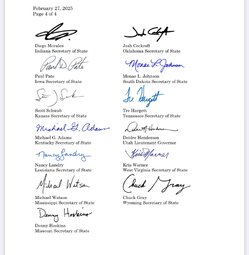 February 27, 2025
Page 4 of 4
Diego Morales
Indiana Secretary of State
Josh Cockroft
Oklahoma Secretary of State
Paul D. Pate
Paul Pate
Iowa Secretary of State
Monae L. Johnson
Monae L. Johnson
South Dakota Secretary of State
Scott Schwab
Kansas Secretary of State
Tre Hargett
Tre Hargett
Tennessee Secretary of State
Michael G. Adams
Michael G. Adams
Kentucky Secretary of State
Deidre Henderson
Utah Lieutenant Governor
Nancy Landry
Nancy Landry
Louisiana Secretary of State
Kris Warner
Kris Warner
West Virginia Secretary of State
Michael Watson
Michael Watson
Mississippi Secretary of State
Chuck Gray
Chuck Gray
Wyoming Secretary of State
Denny Hoskins
Denny Hoskins
Missouri Secretary of State